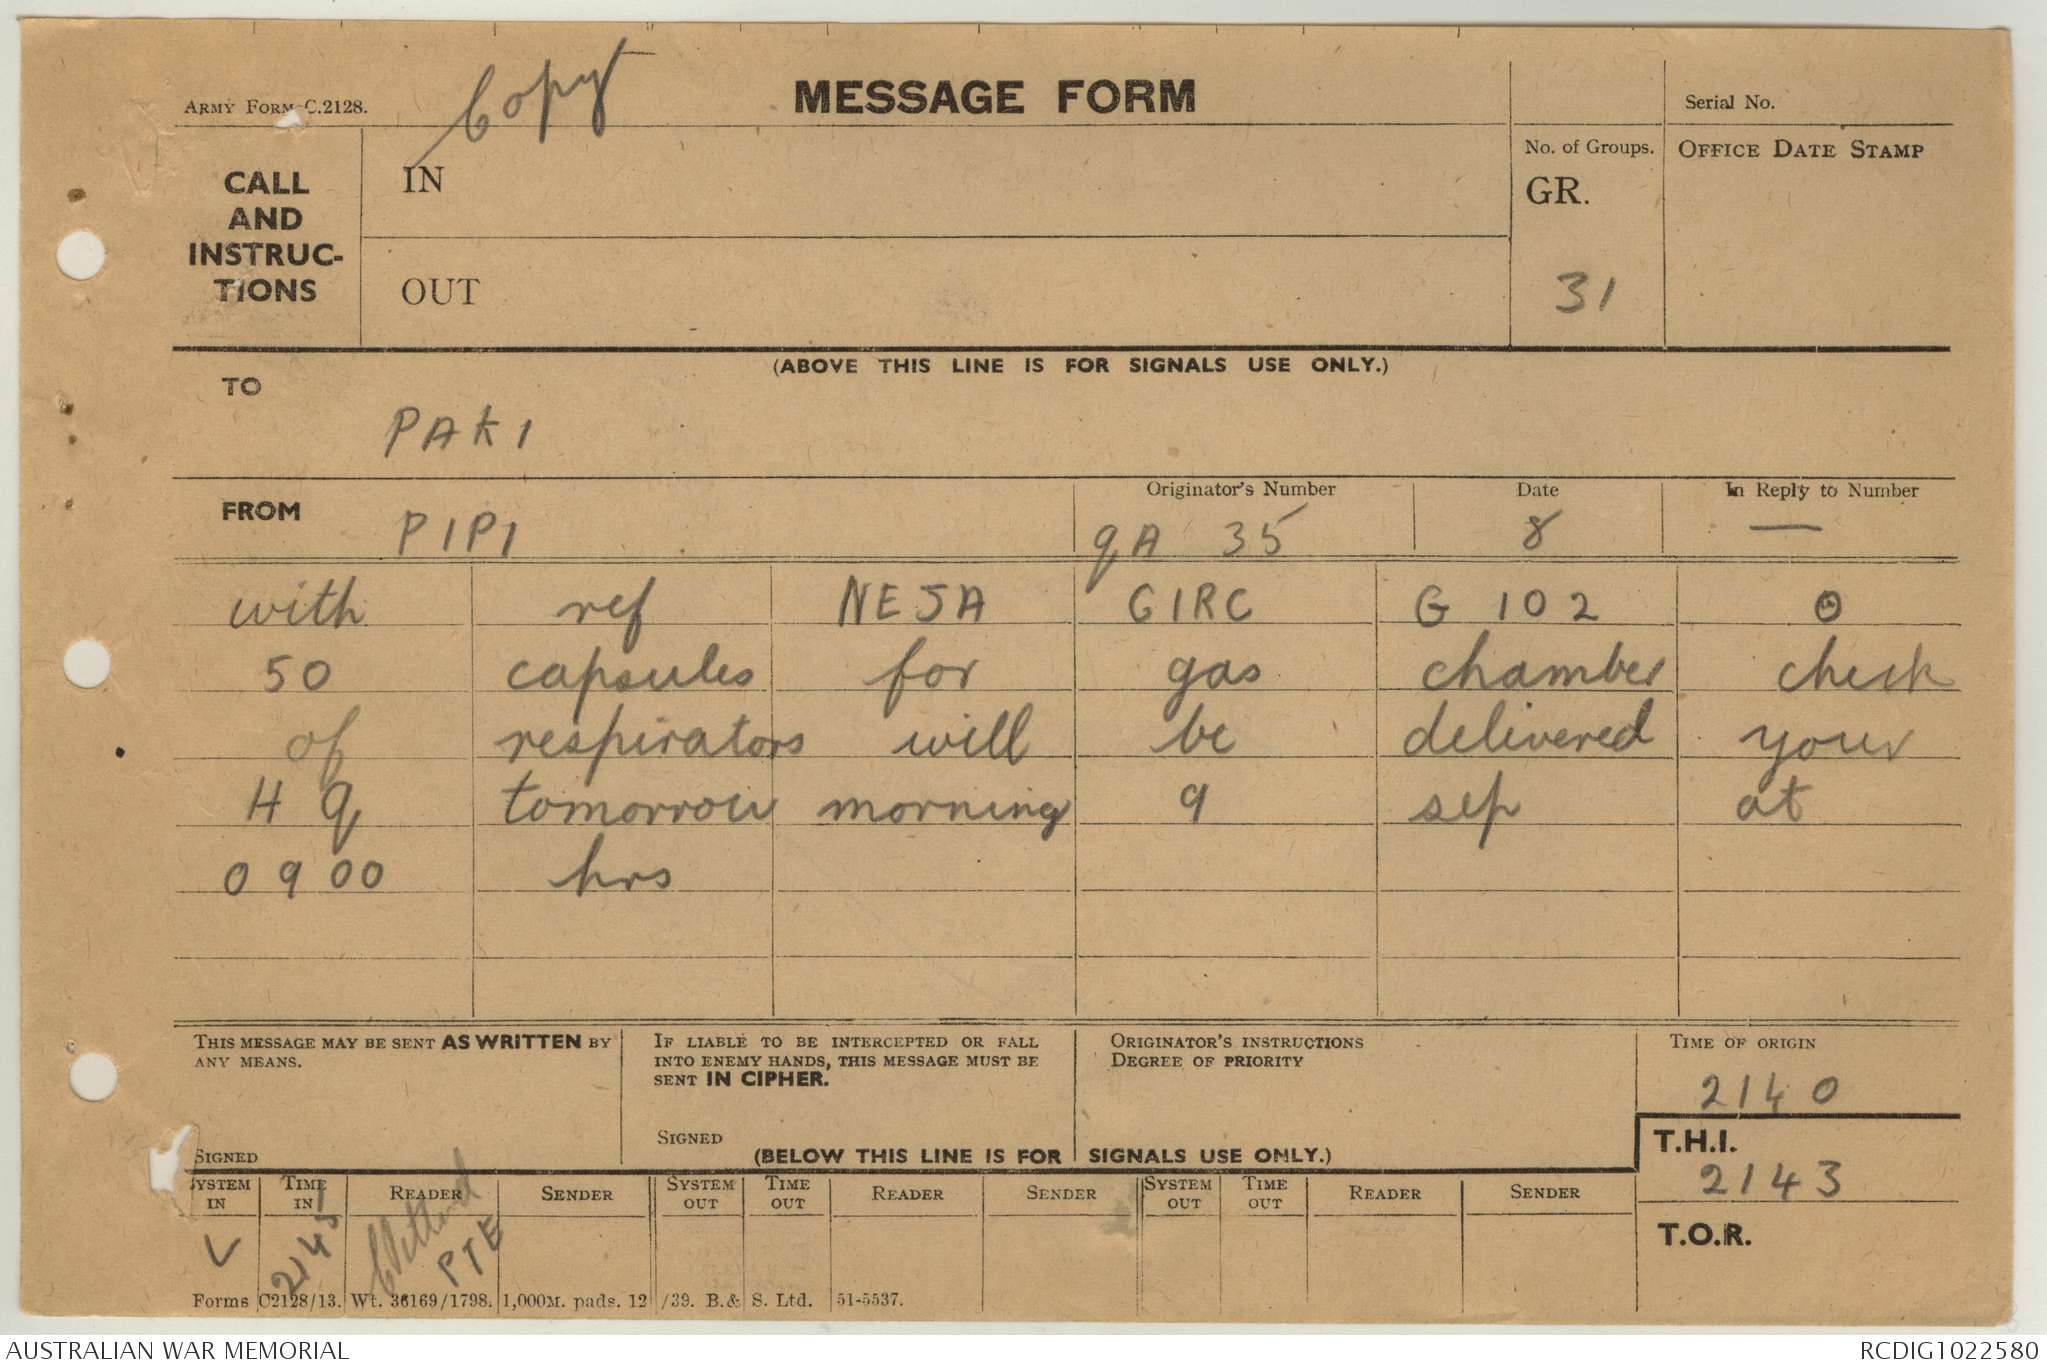 Copy
ARMY FORM C.2128.
MESSAGE FORM
Serial No.
CALL AND INSTRUC-TIONS
IN
OUT
No. of Groups.
GR.
31
OFFICE DATE STAMP
(ABOVE THIS LINE IS FOR SIGNALS USE ONLY.)
TO
PAKI
FROM
PIPI
Originator's Number
QA 35
Date
8
In Reply to Number
—
with ref NEJA CIRC G 102 ⊙
50 capsules for gas chamber check
of respirators will be delivered your
HQ tomorrow morning 9 sep at
0900 hrs
THIS MESSAGE MAY BE SENT AS WRITTEN BY
ANY MEANS.
SIGNED
IF LIABLE TO BE INTERCEPTED OR FALL
INTO ENEMY HANDS, THIS MESSAGE MUST BE
SENT IN CIPHER.
SIGNED
ORIGINATOR'S INSTRUCTIONS
DEGREE OF PRIORITY
TIME OF ORIGIN
2140
(BELOW THIS LINE IS FOR SIGNALS USE ONLY.)
T.H.I.
2143
T.O.R.
SYSTEM IN TIME IN READER SENDER SYSTEM OUT TIME OUT READER SENDER SYSTEM OUT TIME OUT READER SENDER
L PTE
Forms C2128/13. Wt. 36169/1798. 1,000M. pads. 12/39. B.& S. Ltd. 51-5537.
AUSTRALIAN WAR MEMORIAL
RCDIG1022580